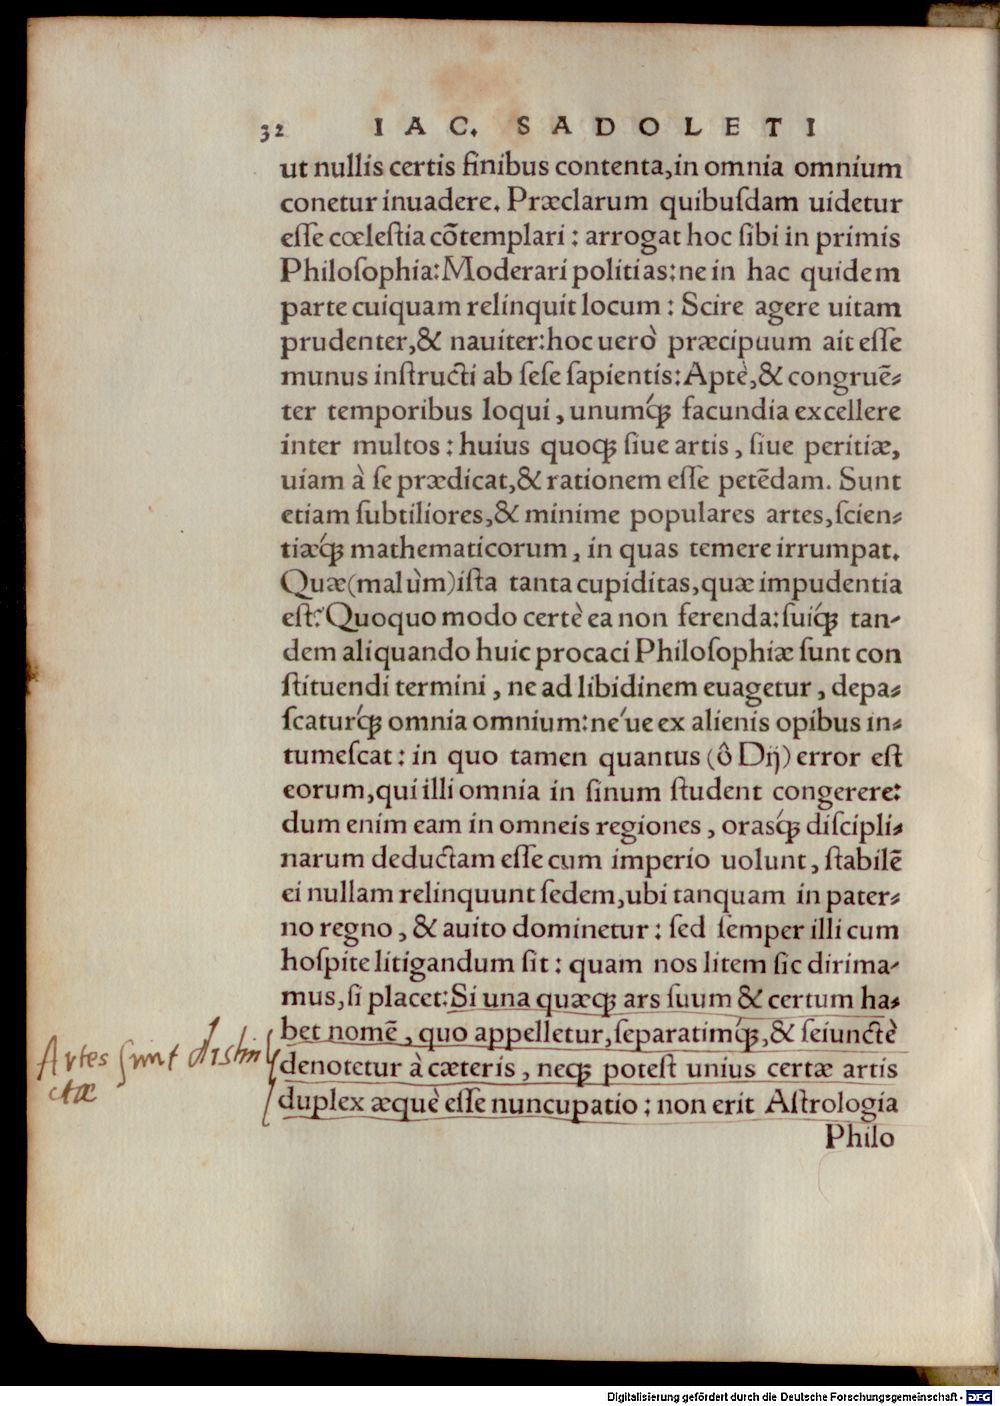 32 IAC. SADOLETI
ut nullis certis finibus contenta,in omnia omnium
conetur inuadere. Præclarum quibuſdam uidetur
eſſe cœleſtia cõtemplari : arrogat hoc ſibi in primis
Philoſophia:Moderari politias:ne in hac quidem
parte cuiquam relinquit locum : Scire agere uitam
prudenter,& nauiter:hoc uerò præcipuum ait eſſe
munus inſtructi ab ſeſe ſapientis:Aptè,& congruẽ⸗
ter temporibus loqui, unumq́ꝫ facundia excellere
inter multos : huius quoqꝫ ſiue artis, ſiue peritiæ,
uiam à ſe prædicat,& rationem eſſe petẽdam. Sunt
etiam ſubtiliores,& minime populares artes,ſcien⸗
tiæq́ꝫ mathematicorum, in quas temere irrumpat.
Quæ(malùm)iſta tanta cupiditas,quæ impudentia
eſt? Quoquo modo certè ea non ferenda:ſuiq́ꝫ tan-
dem aliquando huic procaci Philoſophiæ ſunt con
ſtituendi termini, ne ad libidinem euagetur, depa⸗
ſcaturq́ꝫ omnia omnium:ne'ue ex alienis opibus in⸗
tumeſcat : in quo tamen quantus (ô Dij) error eſt
eorum,qui illi omnia in ſinum ſtudent congerere:
dum enim eam in omneis regiones, orasq́ꝫ diſcipli⸗
narum deductam eſſe cum imperio uolunt, ſtabilẽ
ei nullam relinquunt ſedem,ubi tanquam in pater⸗
no regno, & auito dominetur : ſed ſemper illi cum
hoſpite litigandum ſit : quam nos litem ſic dirima-
mus,ſi placet:Si una quæqꝫ ars ſuum & certum ha⸗
bet nomẽ, quo appelletur,ſeparatimq́ꝫ,& ſeiunctè
denotetur à cæteris, neqꝫ poteſt unius certæ artis
duplex æquè eſſe nuncupatio : non erit Aſtrologia
Philo
Artes sunt distin
ctæ
Digitalisierung gefördert durch die Deutsche Forschungsgemeinschaft - DFG